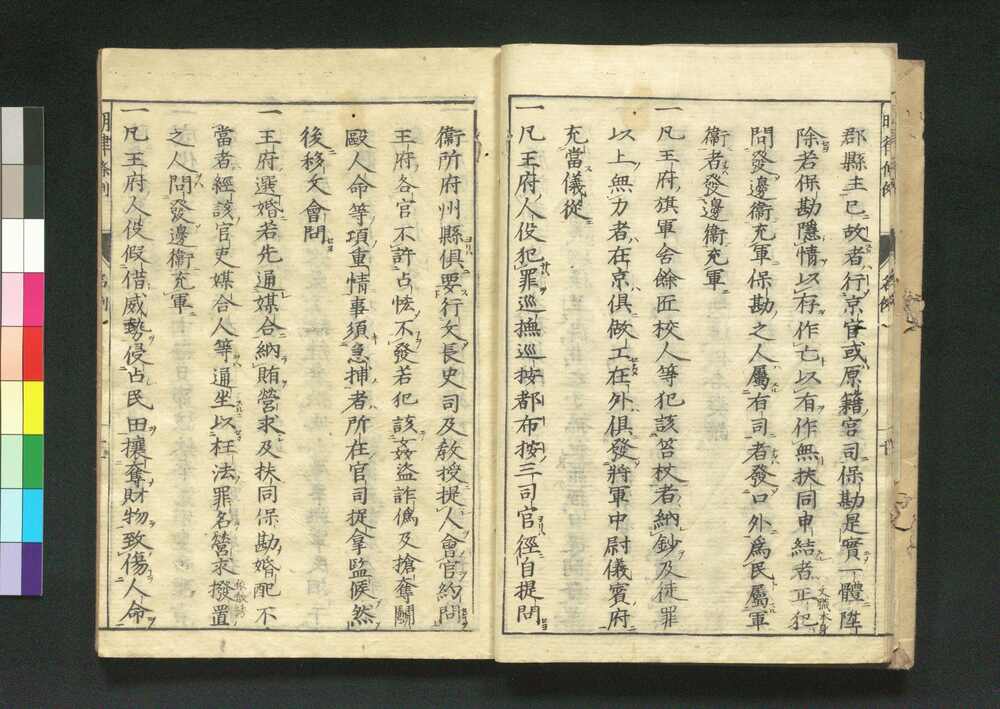 郡縣主已故者行京官或原籍官司保勘是實一體陞
除若保勘隱情以存作亡以有作無扶同申結者正犯
問發邊衞充軍保勘之人屬有司者發口外爲民屬軍
衞者發邊衞充軍
一凡王府旗軍舍餘匠校人等犯該笞杖者納鈔及徒罪
以上無力者在京俱做工在外俱發將軍中尉儀賓府
充當儀從
一凡王府人役犯罪巡撫巡按都布按三司官徑自提問
衞所府州縣俱要行文長史司及敎授提人會官約問
王府各官不許占恡不發若犯該姦盜詐僞及搶奪鬭
毆人命等項重情事須急捕者所在官司捉拿監候然
後移文會問
一王府選婚若先通媒合納賄營求及扶同保勘婚配不
當者經該官吏媒合人等通坐以枉法罪名營求撥置
之人問發邊衞充軍
一凡王府人役假借威勢侵占民田攘奪財物致傷人命
明律條例
名例